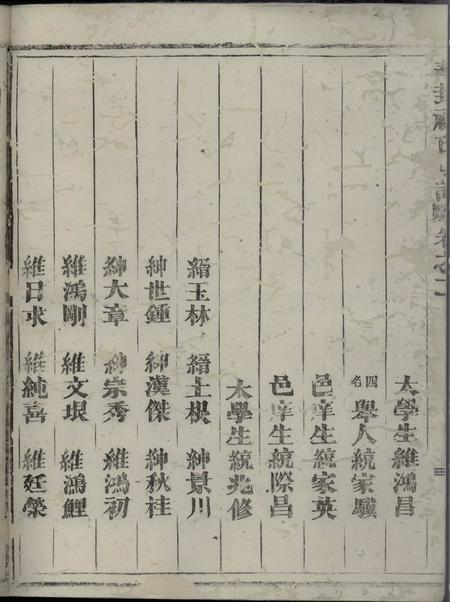 卷之二
太學生維鴻昌
四名舉人統家驥
邑庠生統家英
邑庠生統際昌
太學生統兆修
縉玉林 縉土根 紳景川
紳世鍾 紳漢傑 紳秋桂
紳大章 紳宗秀 維鴻初
維鴻剛 維文垠 維鴻鯉
維日求 維純喜 維廷榮